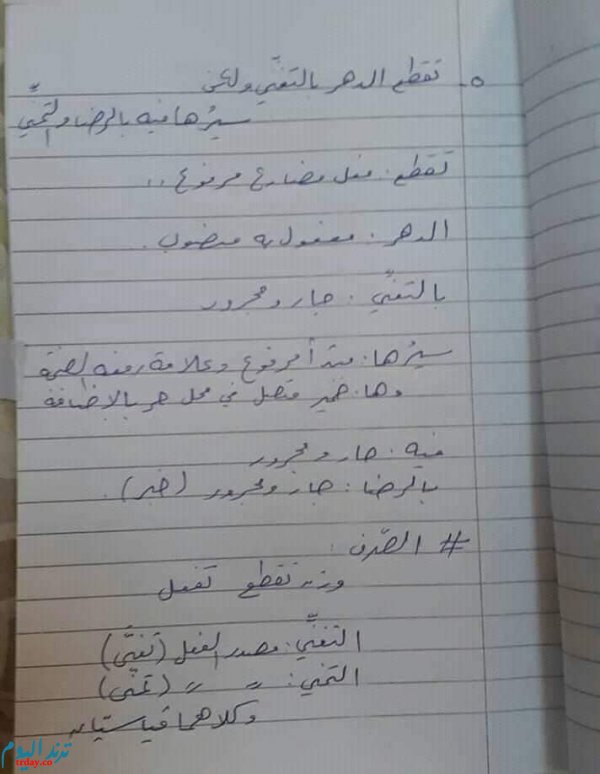 ٥- تقطع الدهر بالتغنّي ولكن
سيرُها فيه بالرضا والتمنّي
تقطع: فعل مضارع مرفوع..
الدهر: مفعول به منصوب.
بالتغنّي: جار ومجرور
سيرُها: مبتدأ مرفوع وعلامة رفعه الضمة
وها: ضمير متصل في محل جر بالإضافة
فيه: جار ومجرور
بالرضا: جار ومجرور (خبر).
# الصّرف:
وزن تقطع تفعل
التغنّي: مصدر الفعل (تغنّى)
التمني: 〃 〃 (تمنّى)
وكلاهما قياسيان
ترند اليوم
trday.co